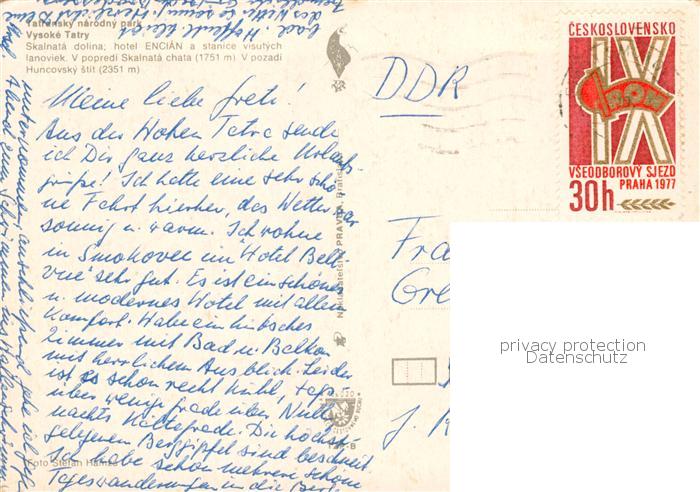 Tatranský národný park
Vysoké Tatry
Skalnatá dolina; hotel ENCIÁN a stanice visutých
lanoviek. V popredí Skalnatá chata (1751 m) V pozadí
Huncovský štít (2351 m)
Meine liebe Greti!
Aus der Hohen Tatra sende
ich Dir ganz herzliche Urlaubs-
grüße! Ich hatte eine sehr schö-
ne Fahrt hierher, das Wetter war
sonnig u. warm. Ich wohne
in Smokovec im "Hotel Belle-
vue" sehr gut. Es ist ein schönes
u. modernes Hotel mit allem
Komfort. Habe ein hübsches
Zimmer mit Bad u. Balkon
mit herrlichem Ausblick. Leider
ist es schon recht kühl, tags
über wenig Grade über Null
nachts Kältegrade. Die höchst
gelegenen Berggipfel sind beschneit.
Ich habe schon mehrere schöne
Tageswanderungen in die Berge
unternommen, anschließend gehe ich jeden
Abend zum Schwimmen ins Hallenschwimm
bad. Hoffentlich bleibt
das Wetter so
DDR
Fra
Gre
Nakladateľstvo PRAVDA, Bratislava
Foto Štefan
ČESKOSLOVENSKO
IX
VŠEODBOROVÝ SJEZD
PRAHA 1977
30h
privacy protection
Datenschutz